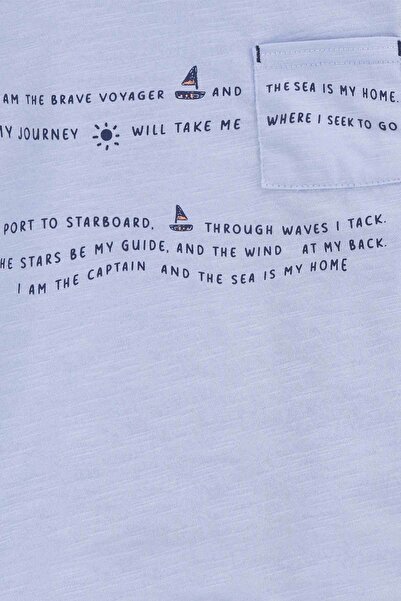 AM THE BRAVE VOYAGER AND THE SEA IS MY HOME.
MY JOURNEY WILL TAKE ME WHERE I SEEK TO GO
PORT TO STARBOARD, THROUGH WAVES I TACK.
HE STARS BE MY GUIDE, AND THE WIND AT MY BACK.
I AM THE CAPTAIN AND THE SEA IS MY HOME